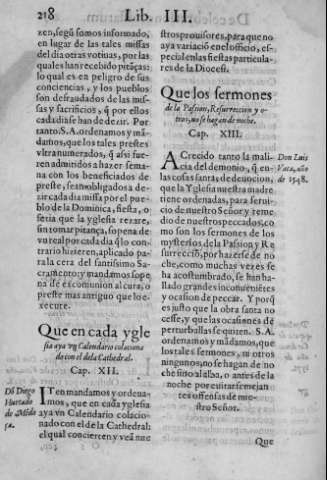 218 Lib. III.
zen, segũ somos informado,
en lugar de las tales missas
del dia otras votiuas, por las
quales han recebido pitãças:
lo qual es en peligro de sus
conciencias, y los pueblos
son defraudados de las mis-
sas y sacrificios, q̃ por ellos
cada dia se han de dezir. Por
tanto. S. A. ordenamos y mã-
damos, que los tales prestes
vltra numerados, q̃ assi fue-
ren admitidos a hazer sema-
na con los beneficiados de
preste, sean obligados a de-
zir cada dia missa por el pue-
blo de la Dominica, fiesta, o
feria que la yglesia rezare,
sin tomar pitança, so pena de
vn real por cada dia q̃ lo con-
trario hizieren, aplicado pa-
ra la cera del santissimo Sa-
cramento: y mandamos so pe-
na de excomunion al cura, o
preste mas antiguo que lo e-
xecute.
Que en cada ygle
sia aya vn Calendario colacionado
con el de la Cathedral.
Cap. XII.
Dõ Diego
Hurtado
de Mẽdo
ça.
ITen mandamos y ordena-
mos, que en cada yglesia
aya vn Calendario colacio-
nado con el de la Cathedral:
el qual concierten y veã nue
stros prouisores, para que no
aya variació en el officio, es-
pecial en las fiestas particula-
res de la Diocesi.
Que los sermones
de la Passion, Resurreccion y o-
tros, no se hagan de noche.
Cap. XIII.
A Crecido tanto la mali-
cia del demonio, q̃ en-
las cosas santa, de deuocion,
que la Yglesia nuestra madre
tiene ordenadas, para serui-
cio de nuestro Señor, y reme-
dio de nuestros peccados, co-
mo son los sermones de los
mysterios, de la Passion y Re
surrecciõ, por hazerse de no
che, como muchas vezes se
ha acostumbrado, se han ha-
llado grandes inconuiniẽtes
y ocasion de peccar. Y porq̃
es justo que la obra santa no
cesse, y que las ocasiones dé
perturballas se quiten. S. A.
ordenamos y mãdamos, que
los tales sermones, ni otros
ningunos, no se hagan de no
che sino al alba, o antes de la
noche por euitar semejan
tes offensas de nue-
stro Señor.
Don Luis
Vaca, año
de 1548.
Que